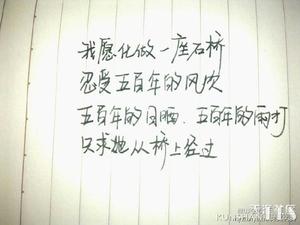 我愿化做一座石桥
忍受五百年的风吹
五百年的日晒、五百年的雨打
只求她从桥上经过